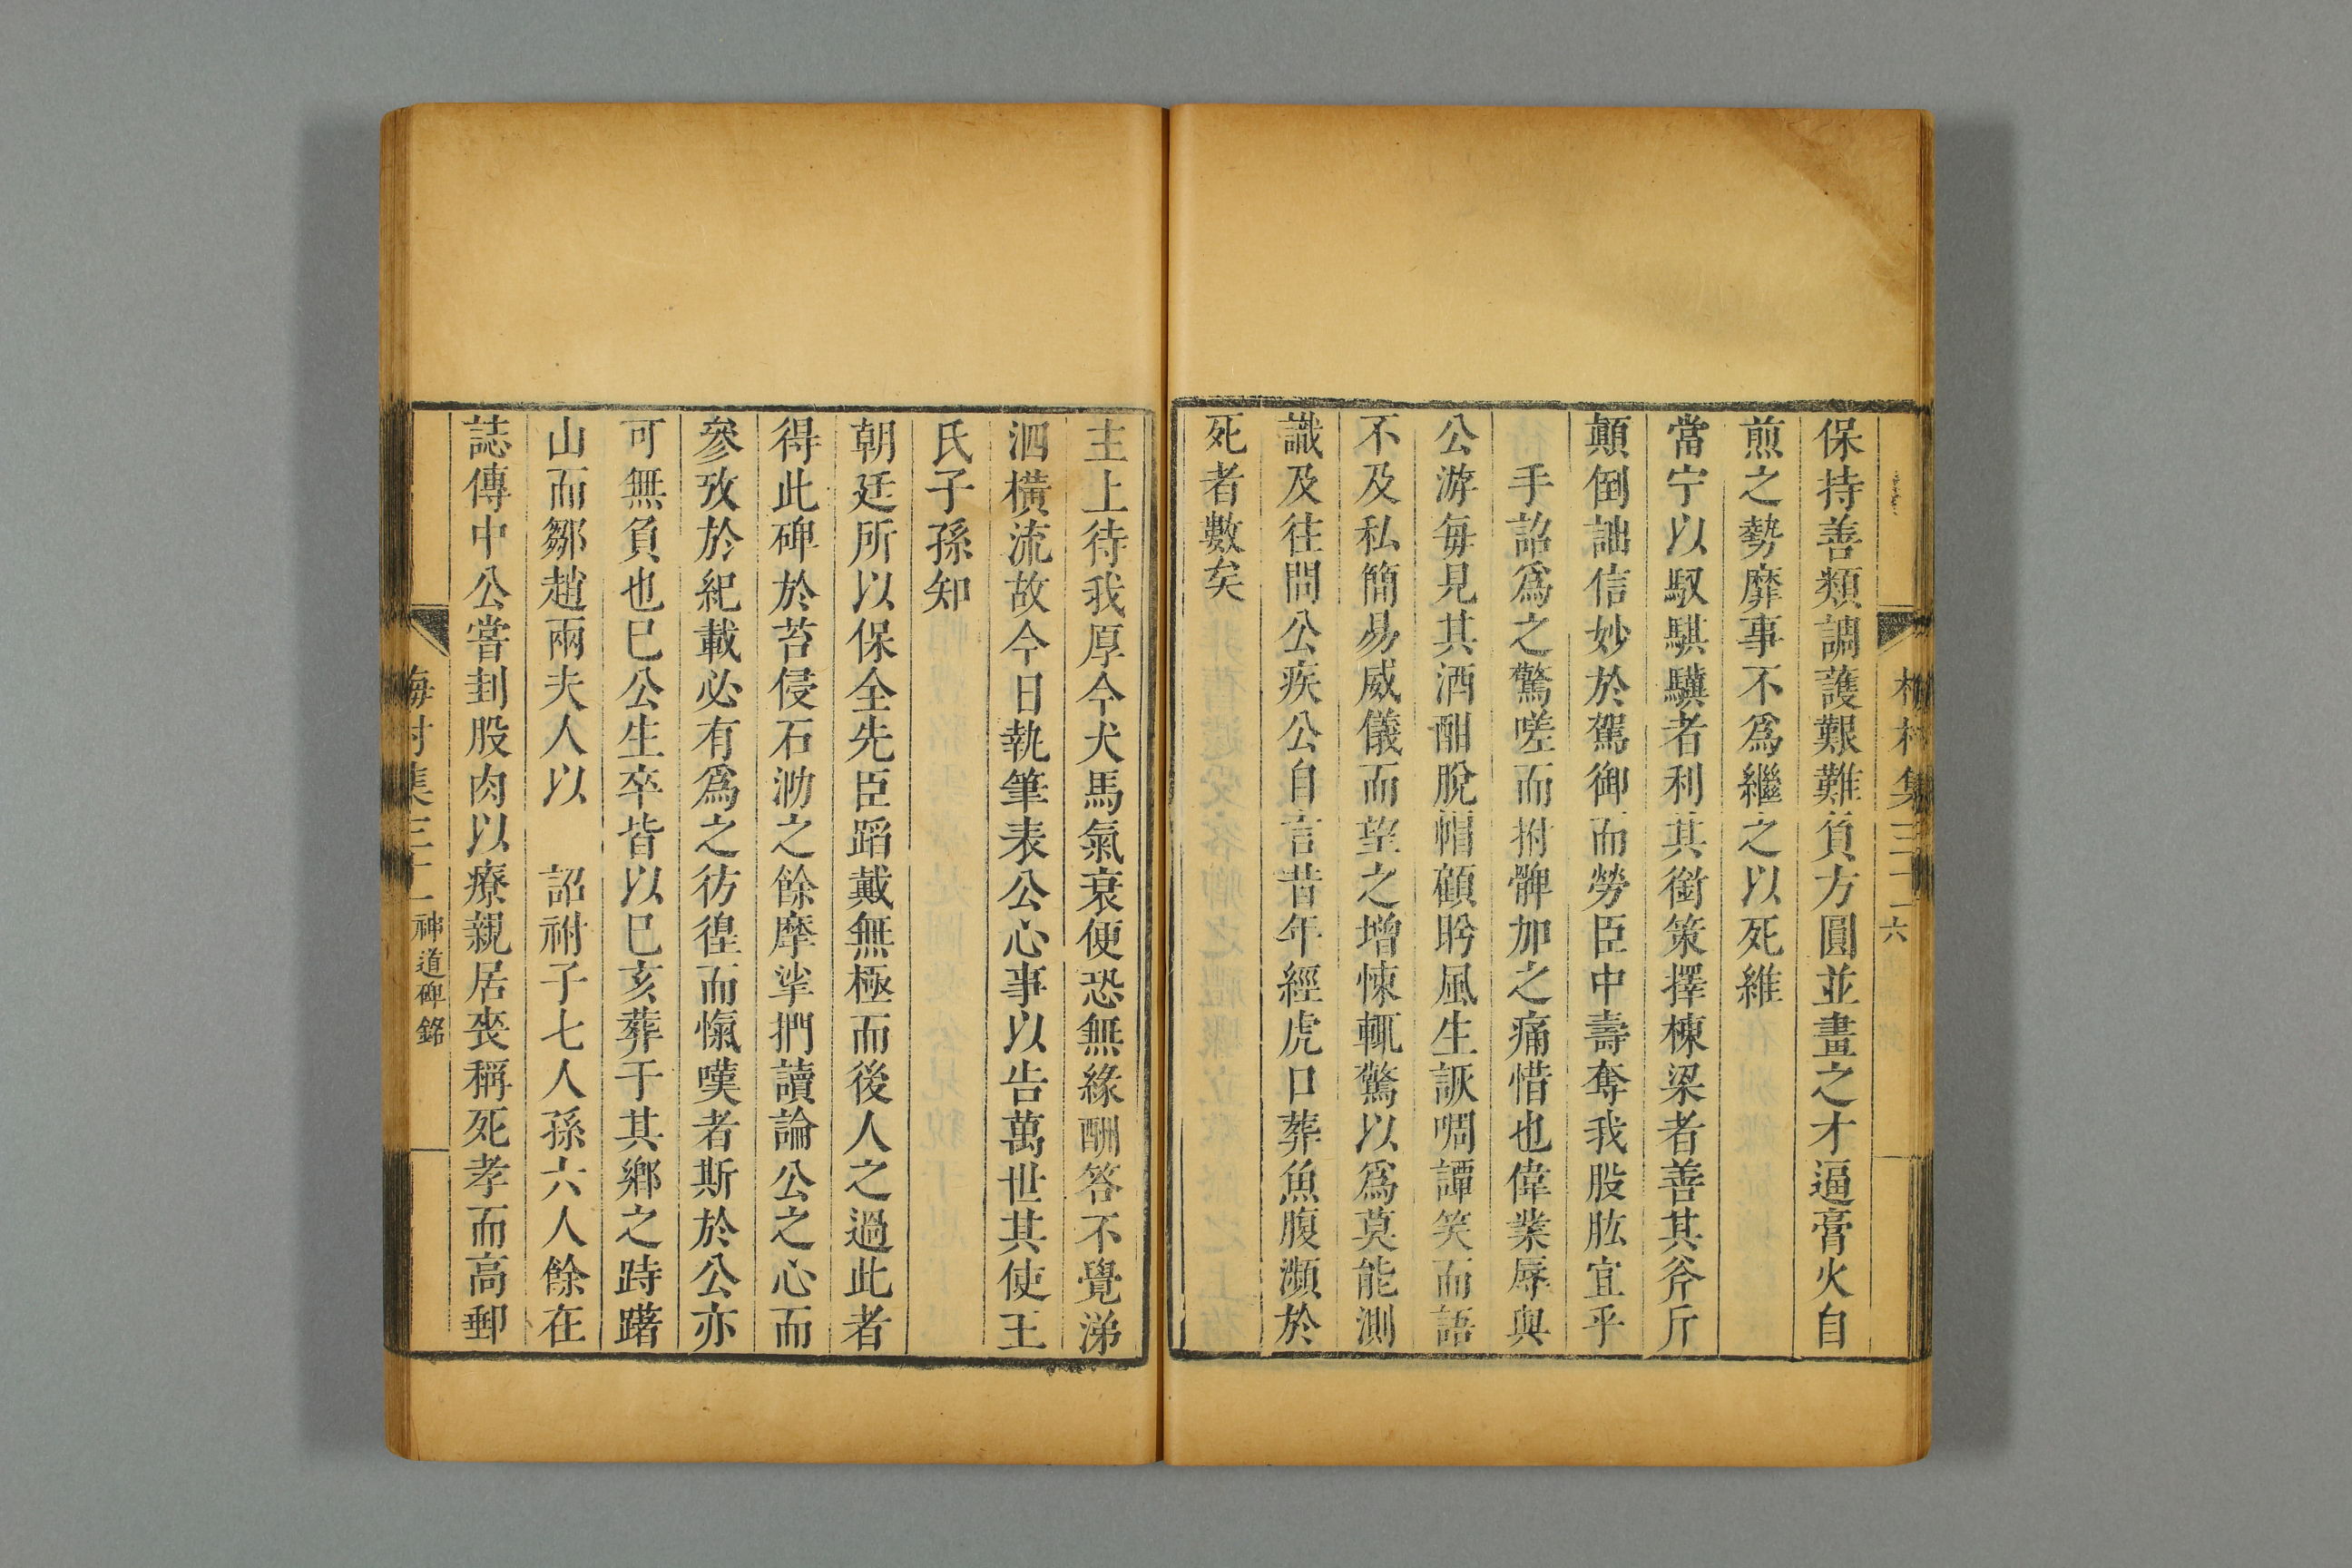 保持善類調護艱難負方圓並畫之才逼膏火自
煎之勢靡事不爲繼之以死維
當宁以馭騏驥者利其銜策擇棟梁者善其斧斤
顛倒詘信妙於駕御而勞臣中壽奪我股肱宜乎
手詔爲之驚嗟而拊髀加之痛惜也偉業辱與
公游每見其酒酣脫帽顧盼風生詼啁譚笑而語
不及私簡易威儀而望之增悚輒驚以爲莫能測
識及往問公疾公自言昔年經虎口葬魚腹瀕於
死者數矣
主上待我厚今犬馬氣衰便恐無緣酬答不覺涕
泗橫流故今日執筆表公心事以告萬世其使王
氏子孫知
朝廷所以保全先臣蹈戴無極而後人之過此者
得此碑於苔侵石泐之餘摩挲捫讀論公之心而
參攷於紀載必有爲之彷徨而愾嘆者斯於公亦
可無負也巳公生卒皆以巳亥葬于其鄉之跱躇
山而鄒趙兩夫人以 詔祔子七人孫六人餘在
誌傳中公嘗刲股肉以療親居喪稱死孝而高郵
梅村集三十一 神道碑銘